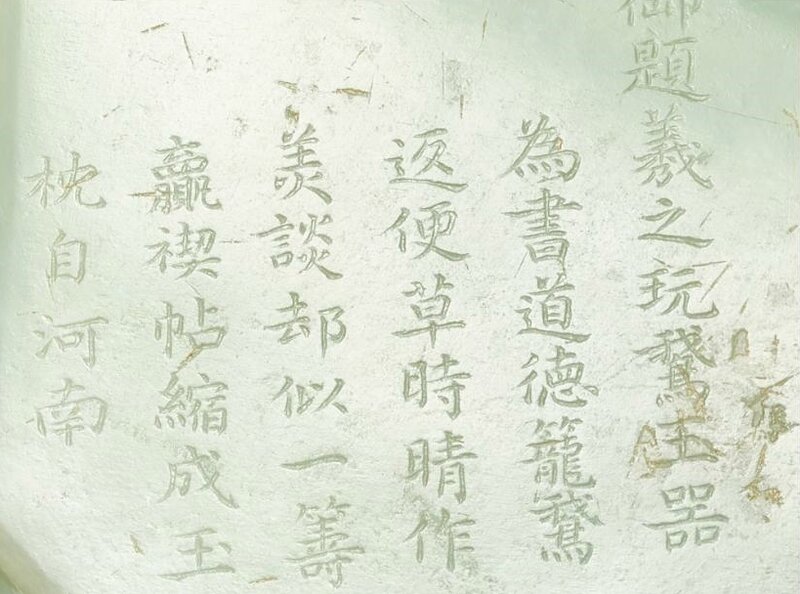 御題羲之玩鵞玉器
為書道德籠鵞
返便草時晴作
羙談却似一籌
贏禊帖縮成玉
枕自河南